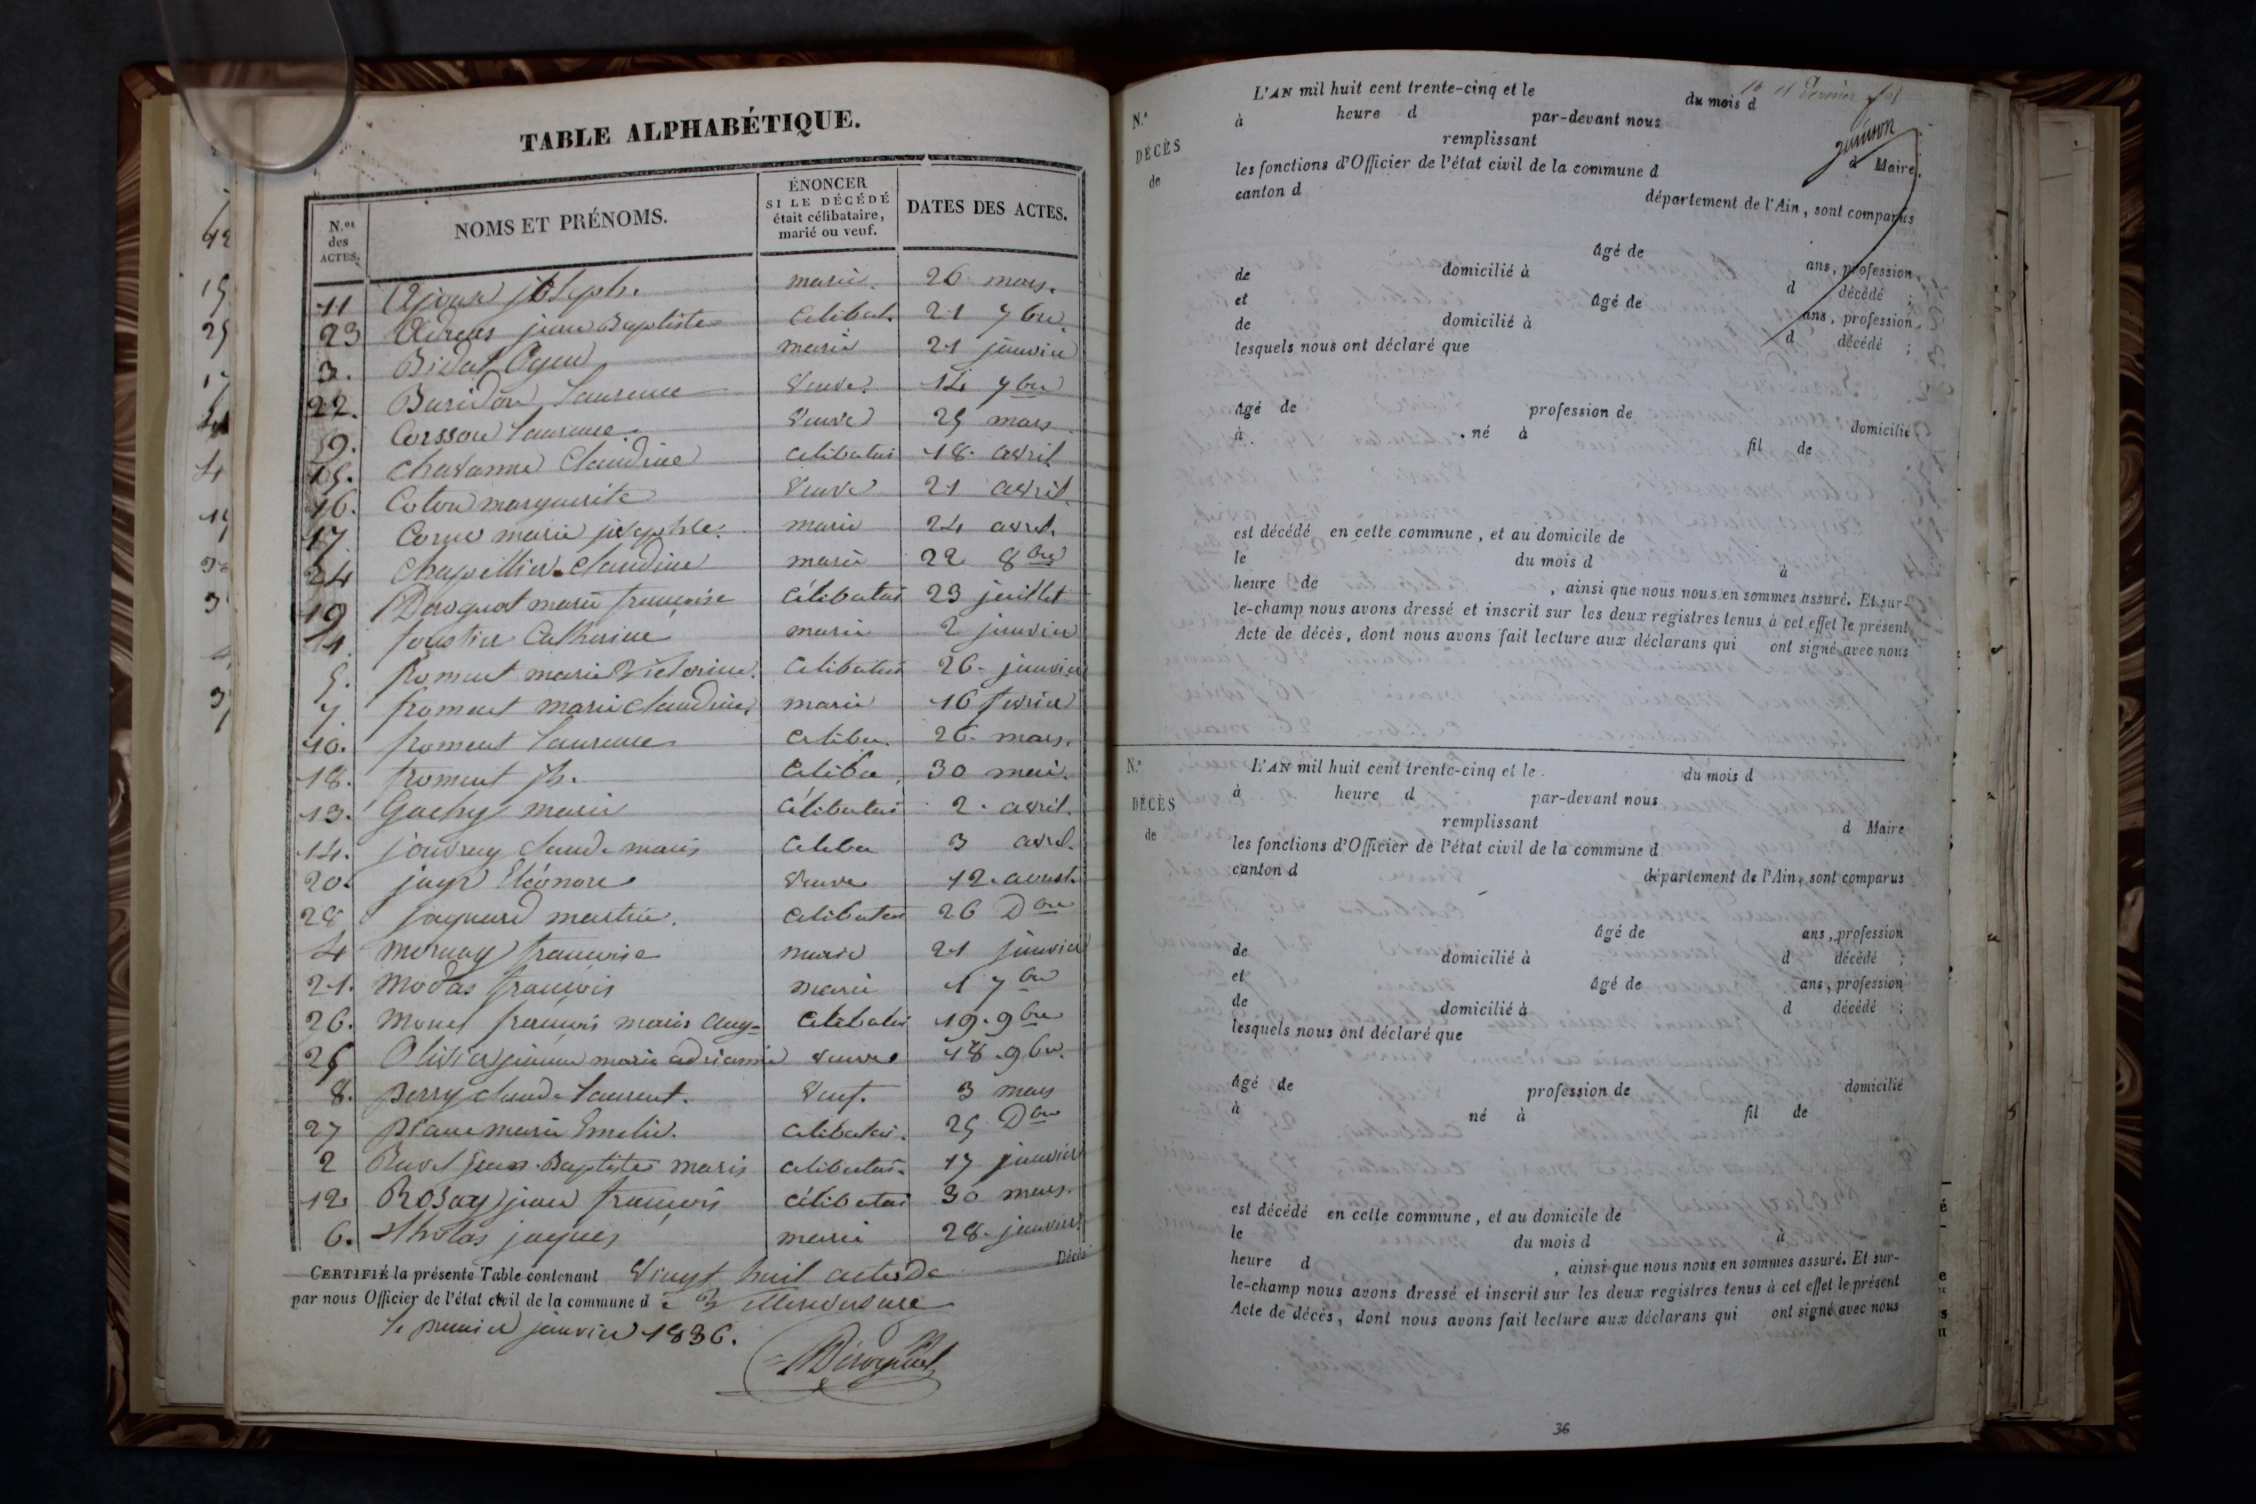 TABLE ALPHABÉTIQUE.
N.os des ACTES.
NOMS ET PRÉNOMS.
ÉNONCER SI LE DÉCÉDÉ était célibataire, marié ou veuf.
DATES DES ACTES.
11 joseph. marié. 26 mars.
23 jean Baptiste Celibat. 21 7bre
3. Bidat marié 21 janvier
22. Buridon Laurence Veuve. 14 7bre
9. Corsson Laurence Veuve 25 mars
15. Chavanne Claudine celibatai 18. avril
16. Coton marguerite Veuve 21 avril
17 marie josephte. marié 24 avril.
24 Chapellier Claudine marié 22 8bre
19 marie françoise célibatai 23 juillet
1. Catherine marié 2 janvier
5. froment marie Victorine. Celibatai 26. janvier
7. froment marie claudine, marié 16 fevrier
10. froment Laurence Celiba. 26. mars.
18. froment jh. Celiba. 30 mai.
13. Gachy marie Célibatai 2. avril.
14. claude marie Celiba 3 avril.
20. jayr Eléonore Veuve 12. aoust.
28 jaquard martin. Celibatai 26 Dbre
4 mornay françoise marié 21 janvier
21. Modas françois marié 1 7bre
26. françois marie Aug= Celibatai 19. 9bre
25 Olivier marie adrianne veuve 18. 9bre.
8. perry claude Laurent. Veuf. 3 mars
27 marie Emelie. Celibatai. 25 Dbre
2 Ravet Jean-Baptiste marie Celibatai. 17 janvier
12 Rosay jean françois Célibatai 30 mars.
6. jaques marié 28. janvier
CERTIFIÉ la présente Table contenant Vingt huit actes de Décès
par nous Officier de l'état civil de la commune de Villeversure
le premier janvier 1836.
10 11 Dernier
L'AN mil huit cent trente-cinq et le du mois d
N.o
à heure d par-devant nous
DÉCÈS
remplissant d Maire,
de
les fonctions d'Officier de l'état civil de la commune d
canton d département de l'Ain, sont comparus
âgé de ans, profession
de domicilié à d décédé ;
et âgé de ans, profession
de domicilié à d décédé ;
lesquels nous ont déclaré que
âgé de profession de domicilié
à né à fil de
est décédé en cette commune, et au domicile de
le du mois d à
heure de , ainsi que nous nous en sommes assuré. Et sur-
le-champ nous avons dressé et inscrit sur les deux registres tenus à cet effet le présent
Acte de décès, dont nous avons fait lecture aux déclarans qui ont signé avec nous
N.o
L'AN mil huit cent trente-cinq et le du mois d
à heure d par-devant nous
DÉCÈS
remplissant d Maire
de
les fonctions d'Officier de l'état civil de la commune d
canton d département de l'Ain, sont comparus
âgé de ans, profession
de domicilié à d décédé ;
et âgé de ans, profession
de domicilié à d décédé ;
lesquels nous ont déclaré que
âgé de profession de domicilié
à né à fil de
est décédé en cette commune, et au domicile de
le du mois d à
heure d , ainsi que nous nous en sommes assuré. Et sur-
le-champ nous avons dressé et inscrit sur les deux registres tenus à cet effet le présent
Acte de décès, dont nous avons fait lecture aux déclarans qui ont signé avec nous
36